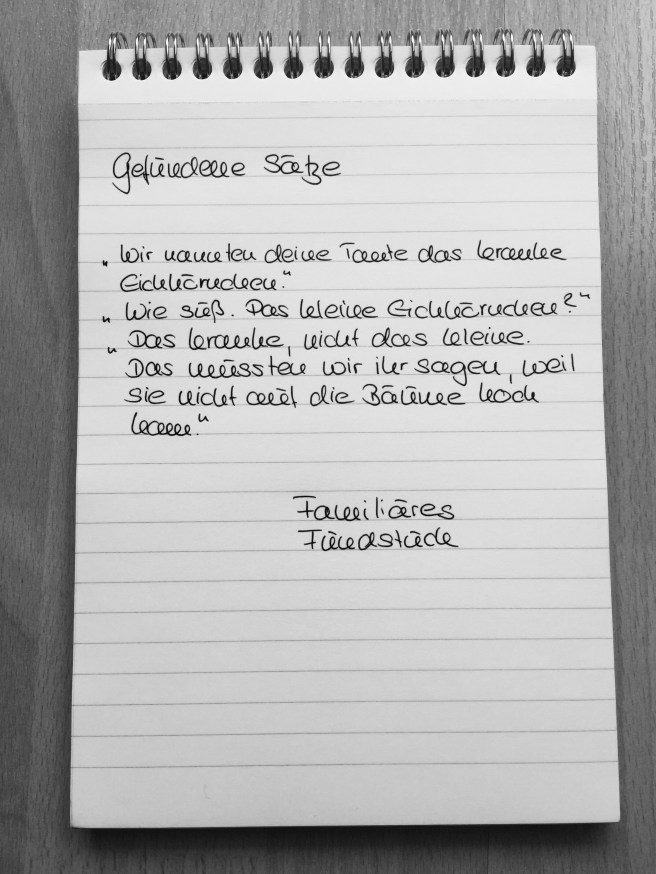 Gefundene Sätze
„Wir nannten deine Tante das kranke
Eichhörnchen."
„Wie süß. Das kleine Eichhörnchen?"
„Das kranke, nicht das kleine.
Das mussten wir ihr sagen, weil
sie nicht auf die Bäume hoch
kam."
Familiäres
Fundstück